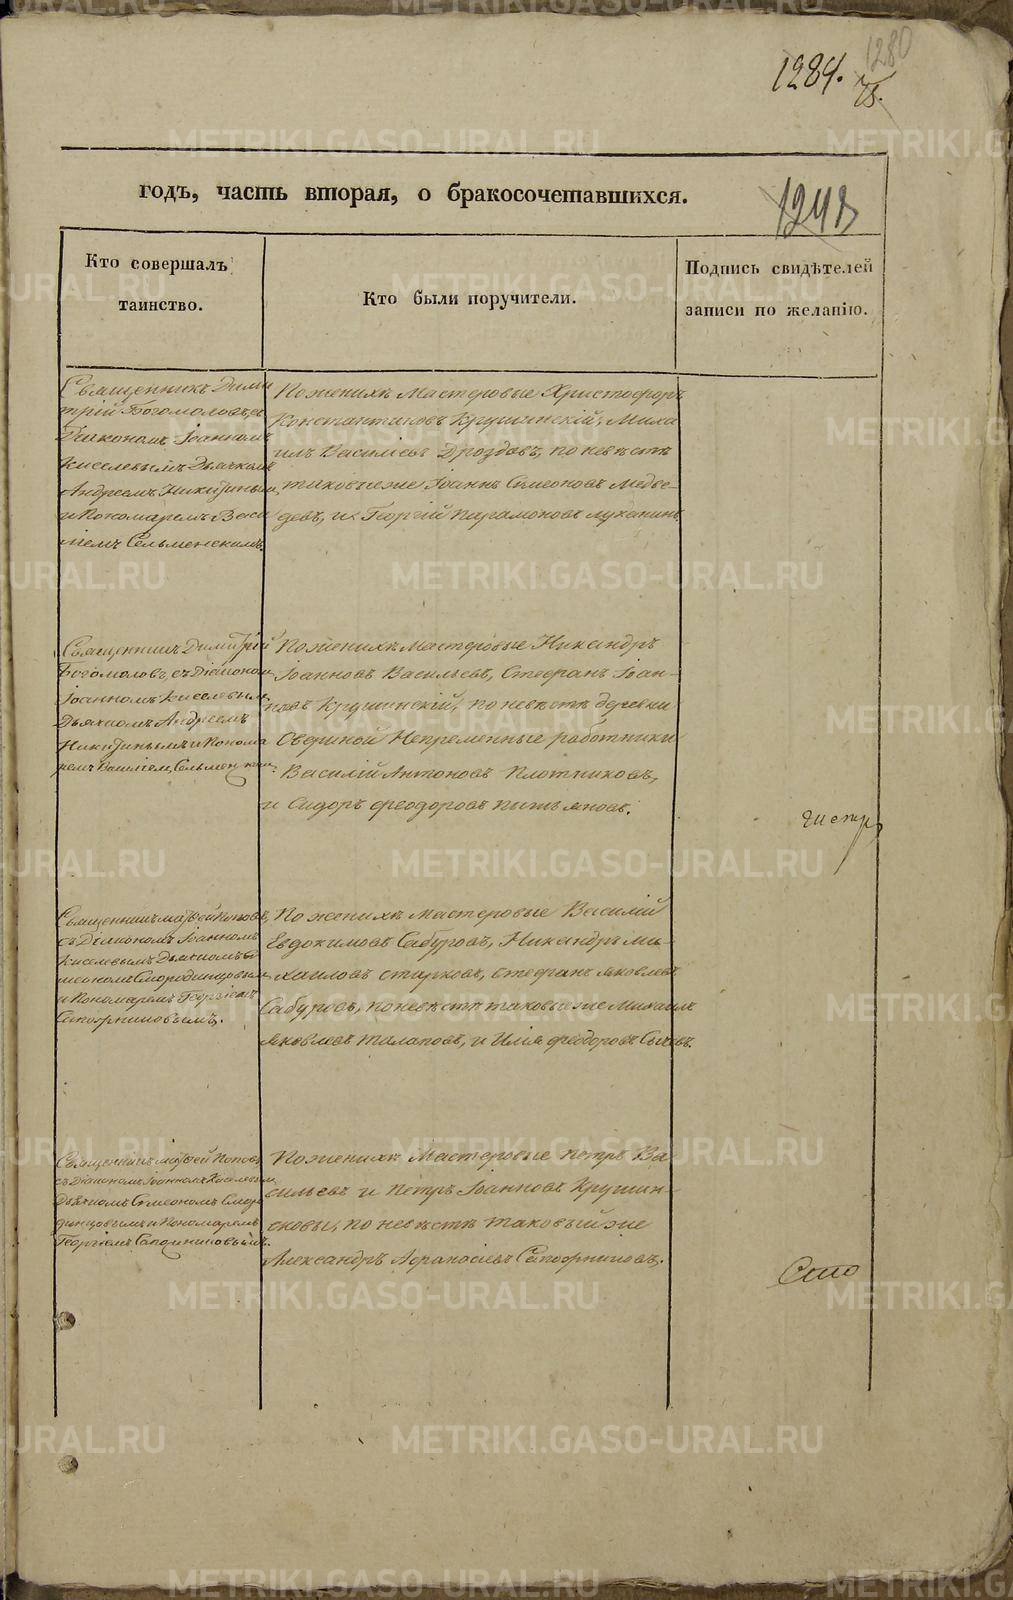 1280
1284.
75.
годъ, часть вторая, о бракосочетавшихся.
Кто совершалъ
таинство.
Кто были поручители.
Подпись свидѣтелей
записи по желанію.
Священникъ Дими
трій Богомоловъ, съ
Діакономъ Іоанномъ
Киселевымъ Дьячкомъ
Андреемъ Никитинымъ,
и Пономаремъ Васи
ліемъ Сельменскимъ.
По женихѣ Мастеровые Христофоръ
Константиновъ Крушинскій, Миха
илъ Василіевъ Дроздовъ, по невѣстѣ
таковые же Іоаннъ Симеоновъ Медве-
девъ, и Георгій Парамоновъ Луканинъ.
Священникъ Димитрій
Богомоловъ, съ Діакономъ
Іоанномъ Киселевымъ
Дьячкомъ Андреемъ
Никитинымъ и Понома
ремъ Василіемъ Сельменскимъ.
По женихѣ Мастеровые Никандръ
Іоанновъ Васильевъ, Стефанъ Іоан-
новъ Крушинскій, по невѣстѣ деревни
Непременные работники
Василій Антоновъ Плотниковъ,
и Сидоръ Феодоровъ
Священникъ Матфей Поповъ,
съ Діакономъ Іоанномъ
Киселевымъ Дьячкомъ Си
меономъ Смородинцовымъ
и Пономаремъ Георгіемъ
Сапожниковымъ.
По женихѣ Мастеровые Василій
Евдокимовъ Сабуровъ, Никандръ Ми-
хаиловъ Старковъ, Стефанъ Яковлевъ
Сабуровъ, по невѣстѣ таковые же Михаилъ
Яковлевъ Талаповъ, и Илія Феодоровъ
Священникъ Матфей Поповъ,
съ Діакономъ Іоанномъ Киселевымъ,
Дьячкомъ Симеономъ Смор
динцовымъ и Пономаремъ
Георгіемъ Сапожниковымъ.
По женихѣ Мастеровые Петръ Ва-
сильевъ и Петръ Іоанновъ Крушин-
сковы, по невѣстѣ таковый же
Александръ Афанасіевъ Сапожниковъ.
METRIKI.GASO-URAL.RU